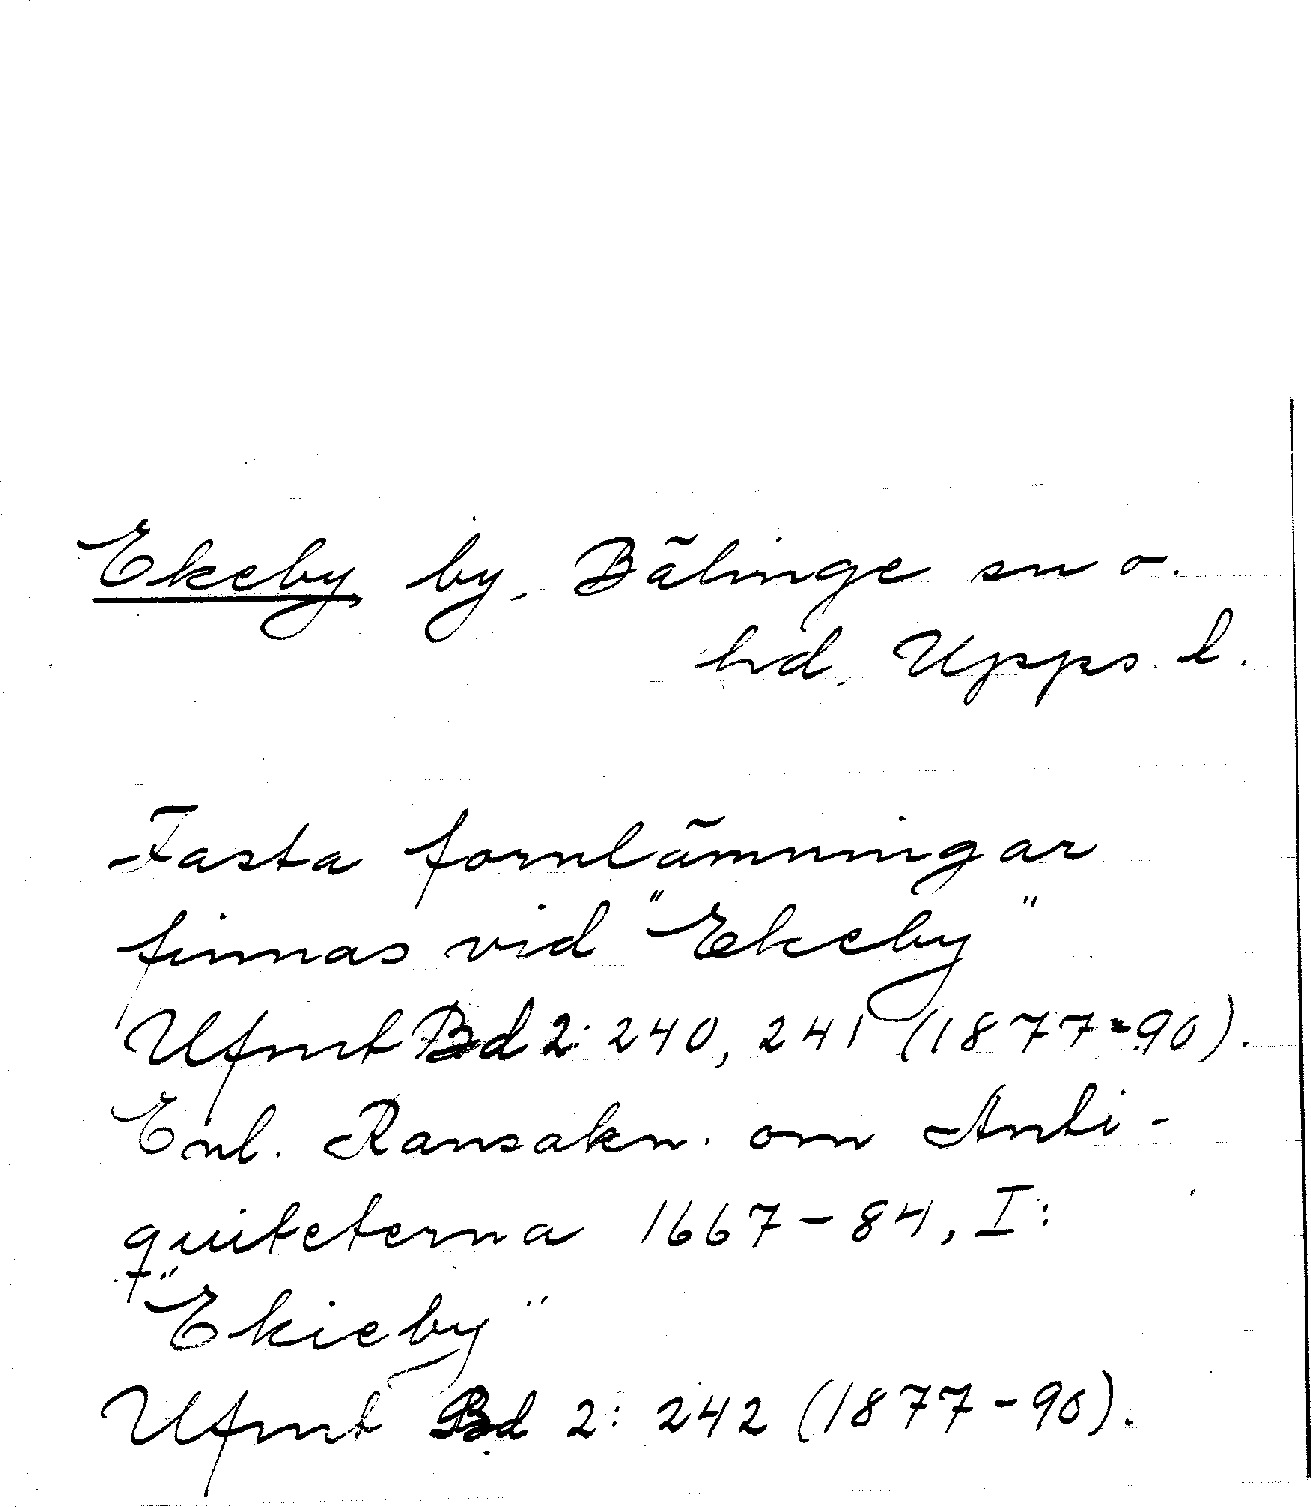 Ekeby by, Bälinge sn o.
hd, Upps. l.
Fasta fornlämningar
finnas vid "Ekeby"
Ufmt Bd 2: 240, 241 (1877-90).
Enl. Ransakn. om Anti-
quiteterna 1667-84, I:
"Ekieby"
Ufmt Bd 2: 242 (1877-90).